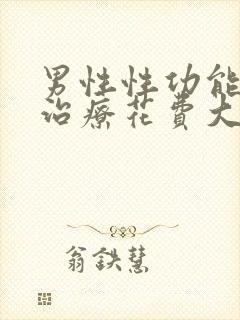 男性性功能
治療花費大
翁鉄慧